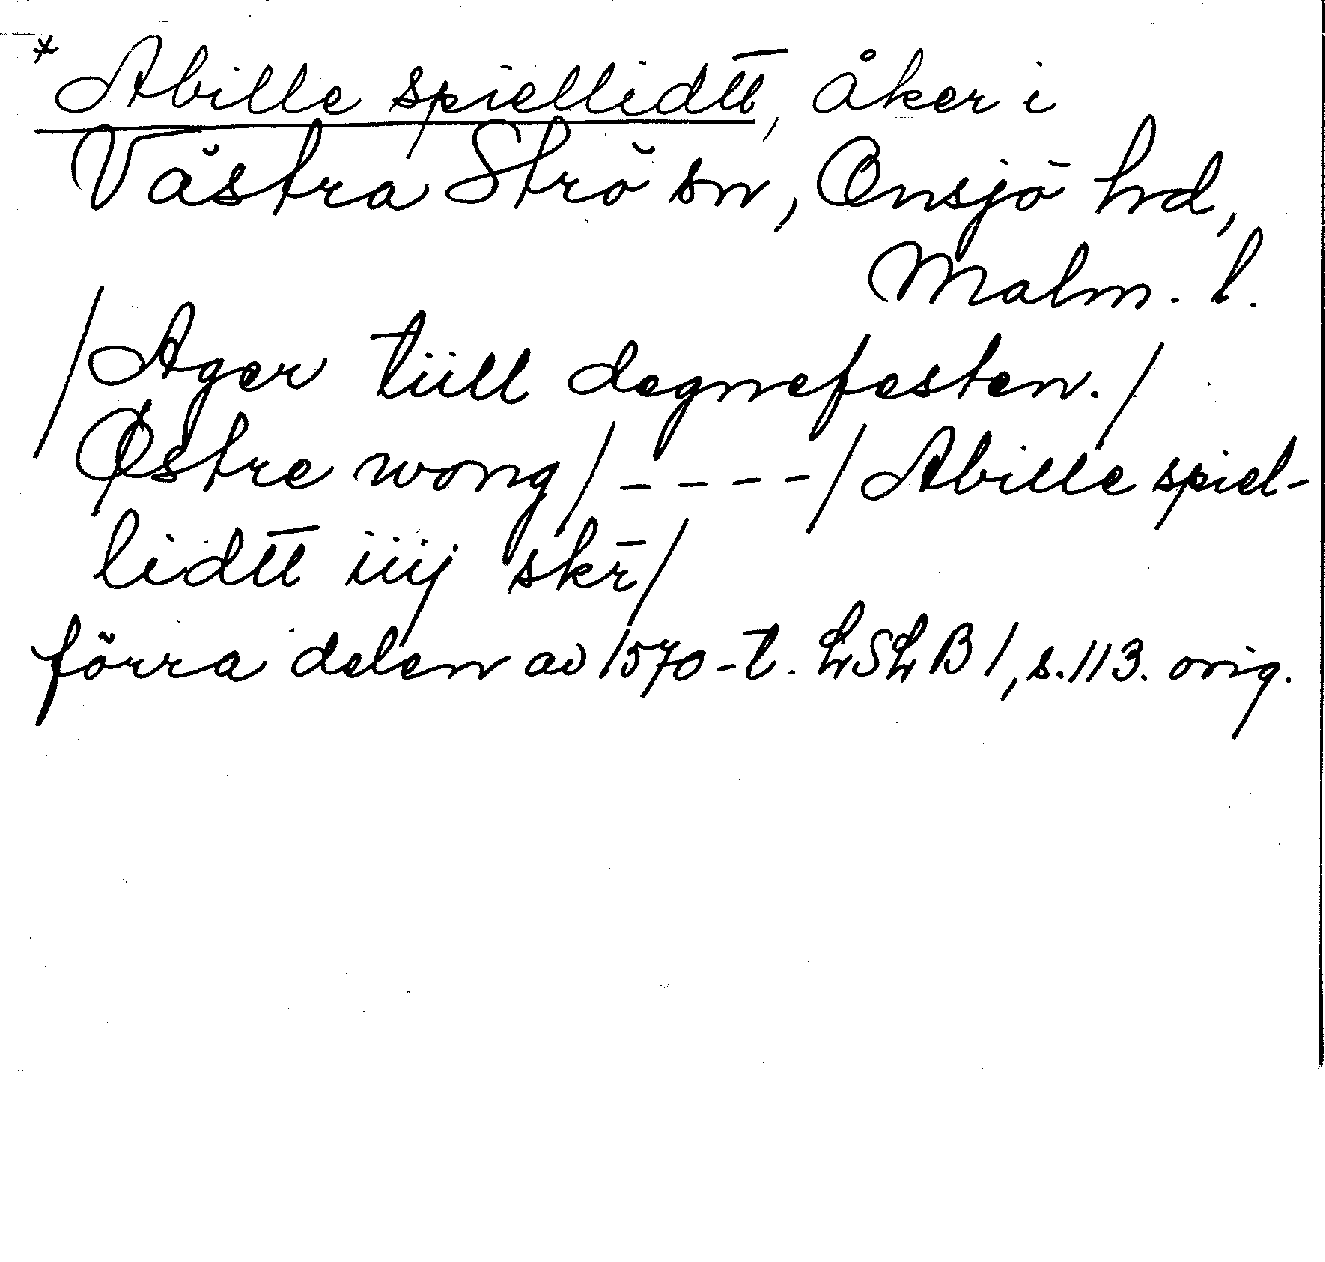 *Abille spiellidtt, åker i
Västra Strö sn, Onsjö hd,
Malm. l.
/Ager tiill degnefesten./
Østre wong/----/Abille spiel-
lidtt iiij skr̄/
förra delen av 1570-t. LSLB1, s.113. orig.